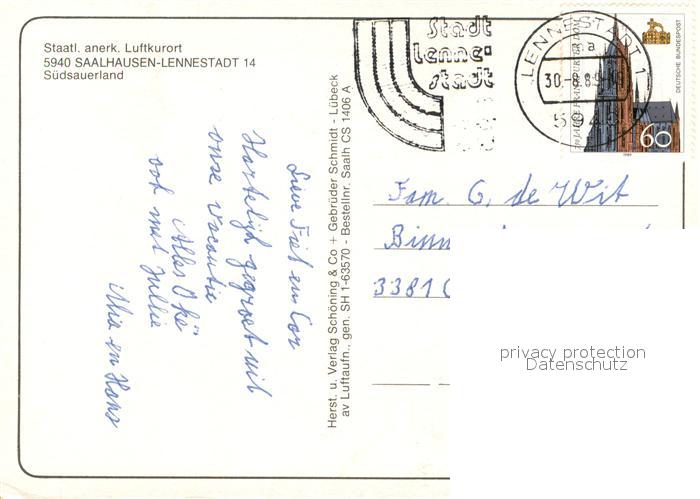 Staatl. anerk. Luftkurort
5940 SAALHAUSEN-LENNESTADT 14
Südsauerland
Stadt
Lenne-
stadt
LENNESTADT 1
a
30.-8.8
DEUTSCHE BUNDESPOST
60
Herst. u. Verlag Schöning & Co + Gebrüder Schmidt - Lübeck
av Luftaufn., gen. SH 1-63570 - Bestellnr. Saalh CS 1406 A
Lieve en Cor
Hartelijk gegroet uit
onze vacantie
Alles Oké
ook met jullie
Mia en Hans
Fam. G. de Wit
Binn
3381
privacy protection
Datenschutz